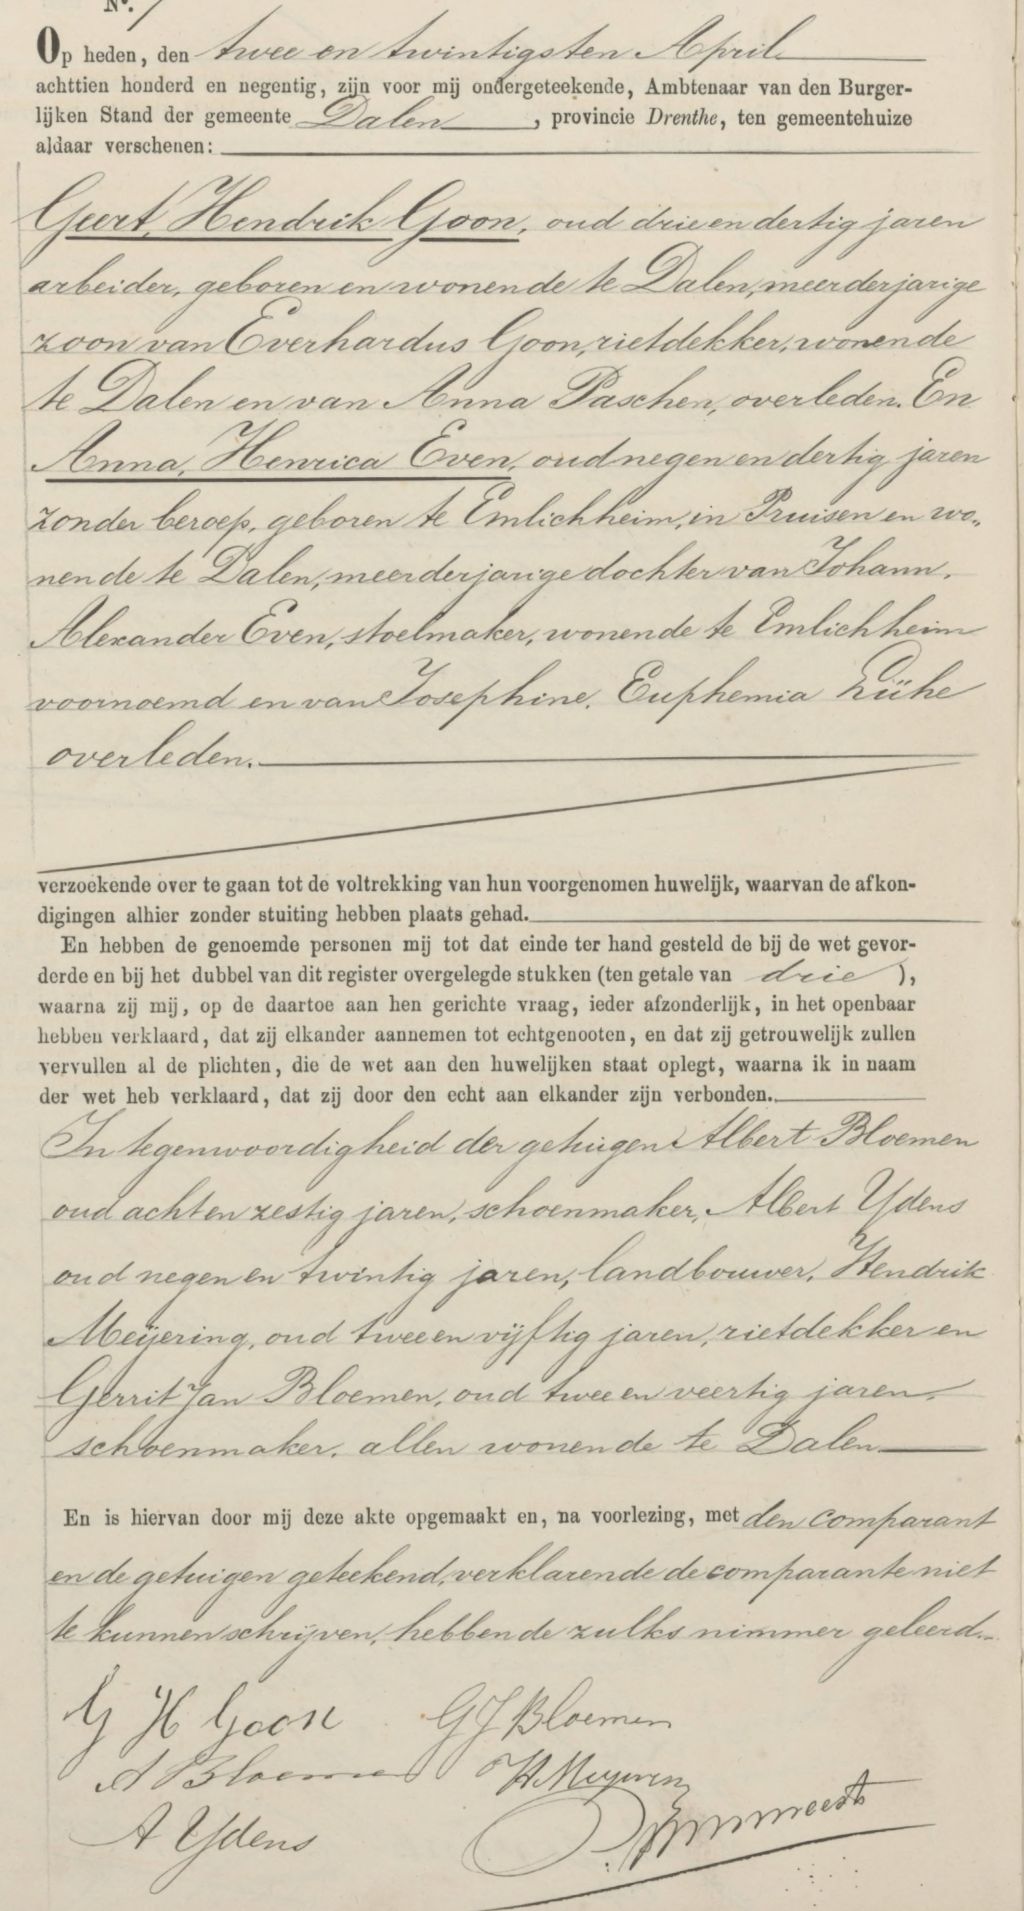 No.
Op heden, den twee en twintigsten April
achttien honderd en negentig, zijn voor mij ondergeteekende, Ambtenaar van den Burger-
lijken Stand der gemeente Dalen, provincie Drenthe, ten gemeentehuize
aldaar verschenen:
Geert, Hendrik Goon, oud drie en dertig jaren
arbeider, geboren en wonende te Dalen, meerderjarige
zoon van Everhardus Goon, rietdekker, wonende
te Dalen en van Anna Paschen, overleden. En
Anna, Henrica Even, oud negen en dertig jaren
zonder beroep, geboren te Emlichheim, in Pruisen en wo„
nende te Dalen, meerderjarige dochter van Johann,
Alexander Even, stoelmaker, wonende te Emlichheim
voornoemd en van Josephine, Euphemia Lühe
overleden.
verzoekende over te gaan tot de voltrekking van hun voorgenomen huwelijk, waarvan de afkon-
digingen alhier zonder stuiting hebben plaats gehad.
En hebben de genoemde personen mij tot dat einde ter hand gesteld de bij de wet gevor-
derde en bij het dubbel van dit register overgelegde stukken (ten getale van drie),
waarna zij mij, op de daartoe aan hen gerichte vraag, ieder afzonderlijk, in het openbaar
hebben verklaard, dat zij elkander aannemen tot echtgenooten, en dat zij getrouwelijk zullen
vervullen al de plichten, die de wet aan den huwelijken staat oplegt, waarna ik in naam
der wet heb verklaard, dat zij door den echt aan elkander zijn verbonden.
In tegenwoordigheid der getuigen Albert Bloemen
oud acht en zestig jaren, schoenmaker, Albert Ydens
oud negen en twintig jaren, landbouwer, Hendrik
Meijering, oud twee en vijftig jaren, rietdekker en
Gerrit Jan Bloemen, oud twee en veertig jaren,
schoenmaker, allen wonende te Dalen
En is hiervan door mij deze akte opgemaakt en, na voorlezing, met den comparant
en de getuigen geteekend, verklarende de comparante niet
te kunnen schrijven, hebbende zulks nimmer geleerd.
G H Goon G J Bloemen
A Bloemen H Meyering
A Ydens